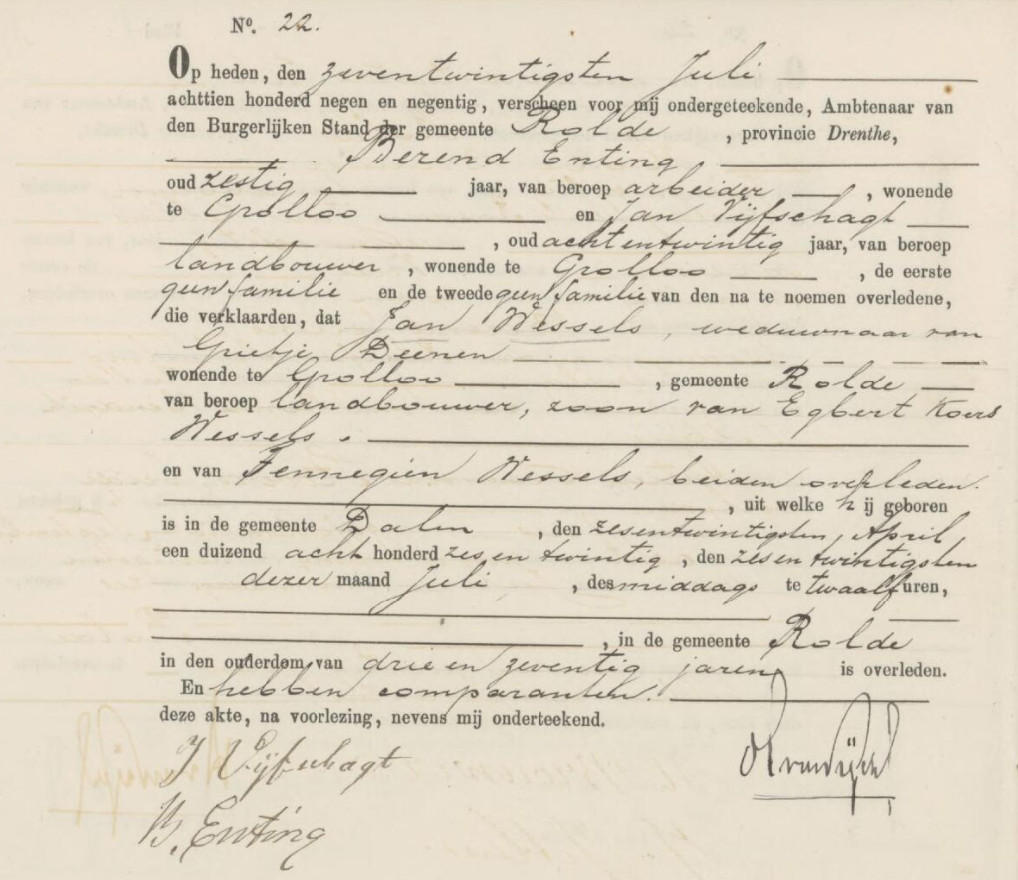 No. 22.
Op heden, den zeventwintigsten Juli
achttien honderd negen en negentig, verscheen voor mij ondergeteekende, Ambtenaar van
den Burgerlijken Stand der gemeente Rolde, provincie Drenthe,
Berend Enting,
oud zestig jaar, van beroep arbeider, wonende
te Grolloo en Jan Vijfschagt
, oud achtentwintig jaar, van beroep
landbouwer, wonende te Grolloo, de eerste
geen familie en de tweede geen familie van den na te noemen overledene,
die verklaarden, dat Jan Wessels, weduwnaar van
Grietje Deenen
wonende te Grolloo, gemeente Rolde
van beroep landbouwer, zoon van Egbert Koers
Wessels.
en van Fennegien Wessels, beiden overleden.
, uit welke hij geboren
is in de gemeente Dalen, den zesentwintigsten, April
een duizend acht honderd zes en twintig, den zes en twintigsten
dezer maand Juli, des middags te twaalf uren,
, in de gemeente Rolde
in den ouderdom van drie en zeventig jaren is overleden.
En hebben comparanten.
deze akte, na voorlezing, nevens mij onderteekend.
J Vijfschagt
B. Enting